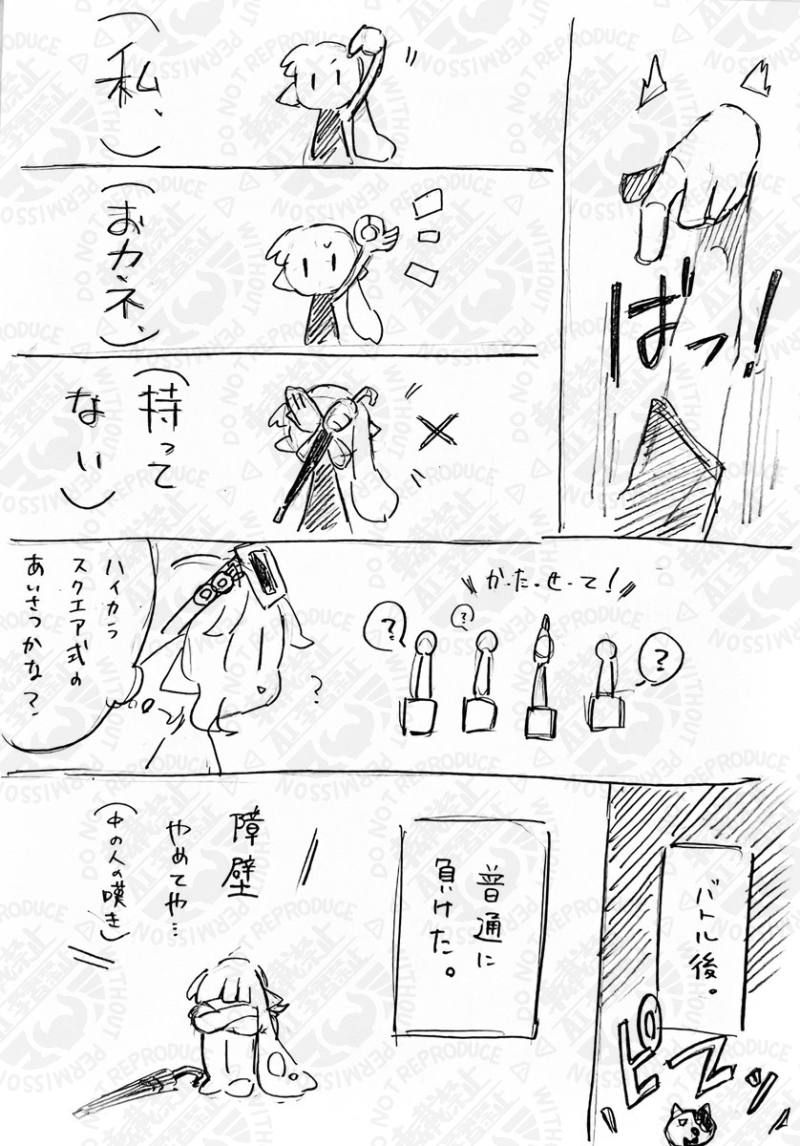 ばっ!
(私、)
(おカネ、)
(持って
ない)
か・た・せ・て!
?
?
?
?
ハイカラ
スクエア式の
あいさつかな?
バトル後。
ピ
普通に
負けた。
障壁
やめてや…
(中の人の嘆き)
転載禁止
AI学習禁止
DO NOT REPRODUCE
WITHOUT
PERMISSION